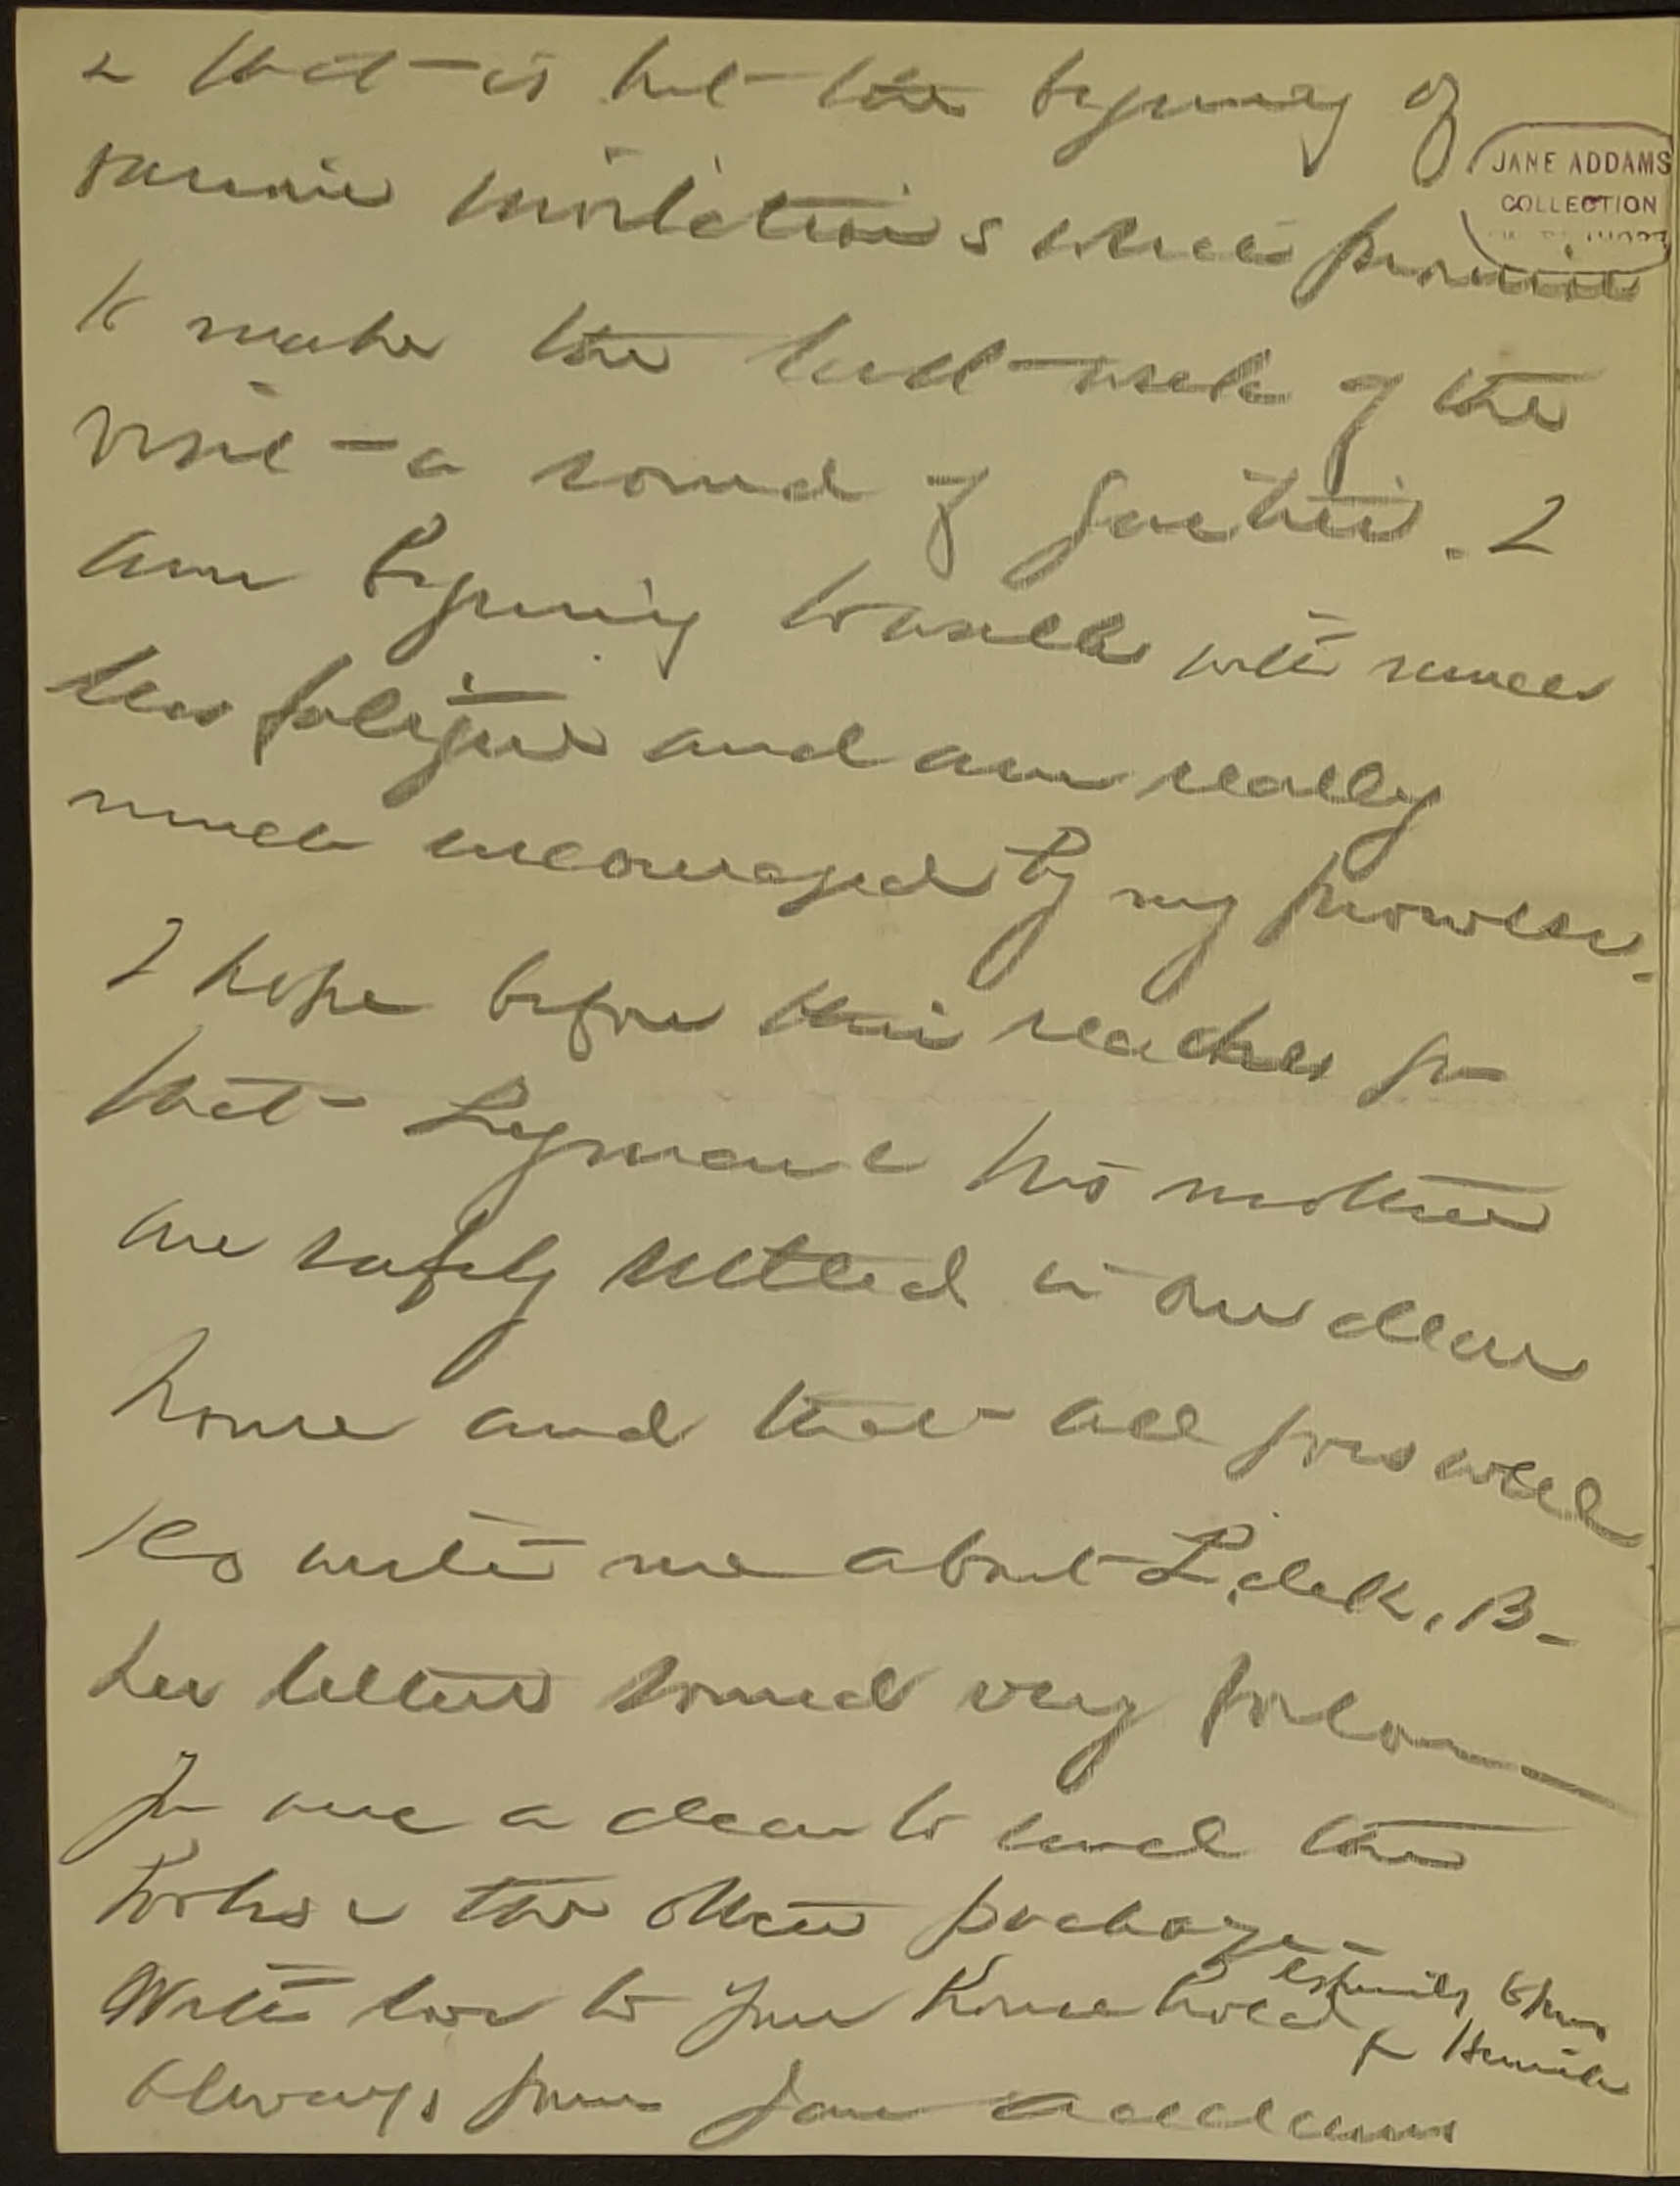 & that is but the begining of
JANE ADDAMS
COLLECTION
various invitations which promise
to make the last week of the
visit - a round of gaieties. I
am begining to walk with much
less fatigue and am really
much encouraged by my prowess.
I hope before this reaches you
that Lyman & his mother
are safely settled in our dear
house and that all goes well
Do write me about L. deK. B -
her letters sound very forlorn
You are a dear to send the
books & the other package -
With love to your household,
especially to you
& Hannah
Always yours Jane Addams